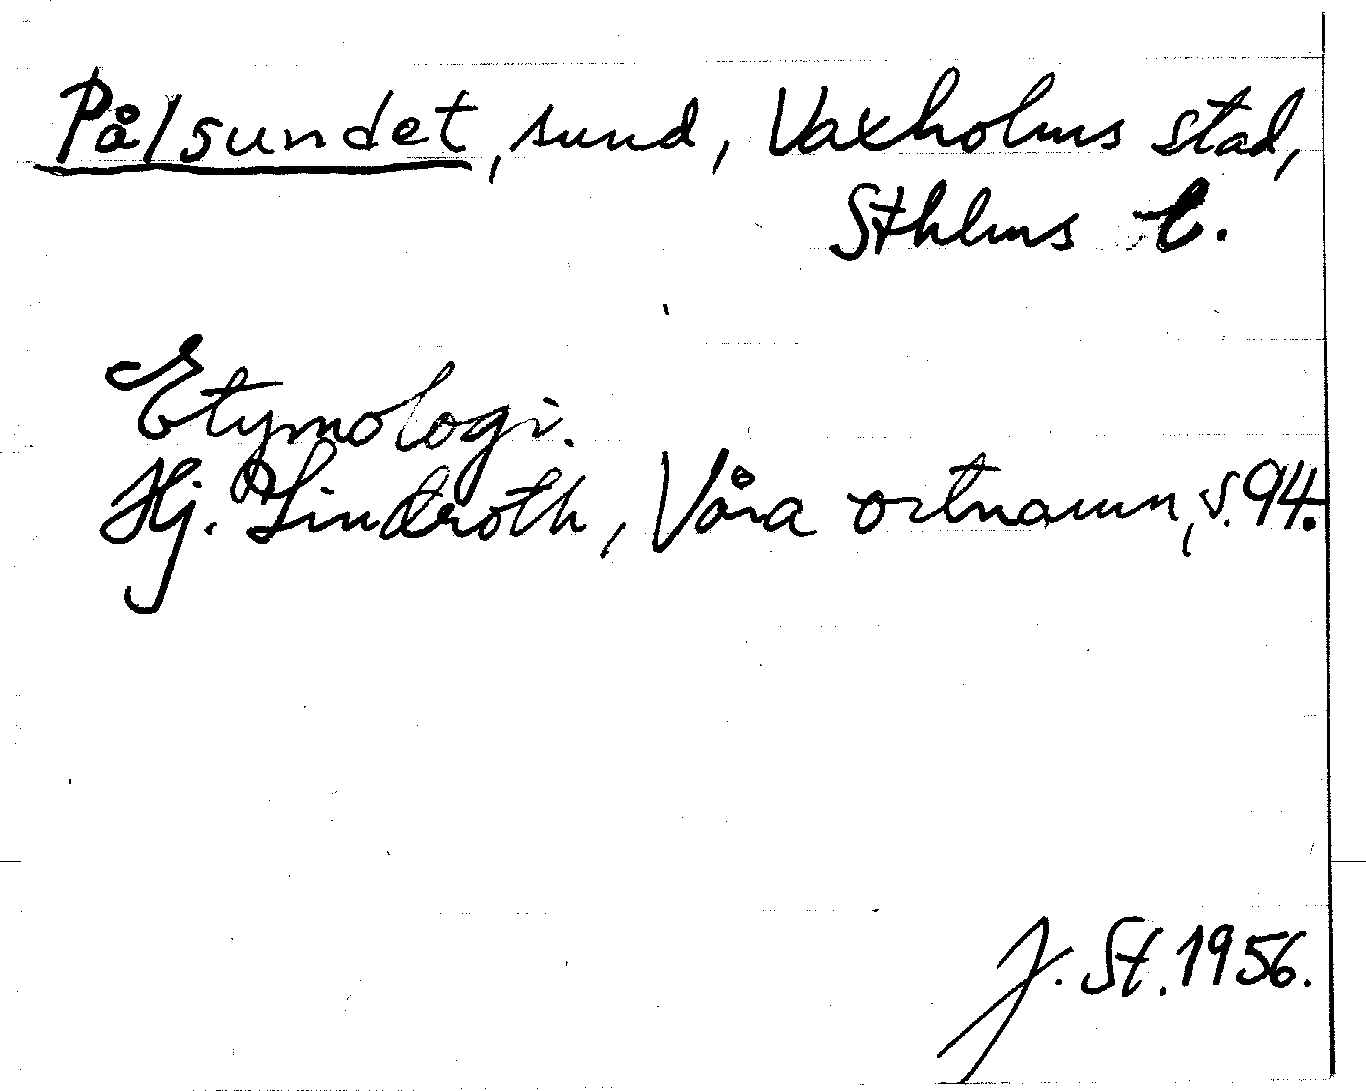 Pålsundet, sund, Vaxholms stad,
Sthlms l.
Etymologi.
Hj. Lindroth, Våra ortnamn, s. 94.
J. St. 1956.